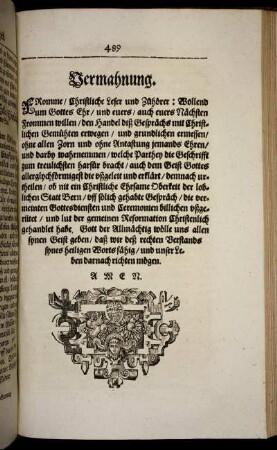 489
Vermahnung.
FRomme/ Christliche Leser und Zůhörer: Wollend
um Gottes Ehr/ und euers/ auch euers Nächsten
Frommen willen/ den Handel diß Gesprächs mit Christ-
lichen Gemühten erwegen/ und grundlichen ermessen/
ohne allen Zorn und ohne Antastung jemands Ehren/
und darby wahrnemmen/ welche Parthey die Geschrifft
zum treulichsten harfür bracht/ auch dem Geist Gottes
allerglychförmigest die ußgeleit und erklärt/ demnach ur-
theilen/ ob nit ein Christliche Ehrsame Oberkeit der lob-
lichen Statt Bern/ uff sölich gehabt Gespräch/ die ver-
meinten Gottesdiensten und Ceremonien billichen ußge-
rütet/ und lut der gemeinen Reformation Christenlich
gehandlet habe. Gott der Allmächtig wölle uns allen
synen Geist geben/ daß wir deß rechten Verstands
synes heiligen Worts fähig/ und unser Le-
ben darnach richten mögen.
A M E N.